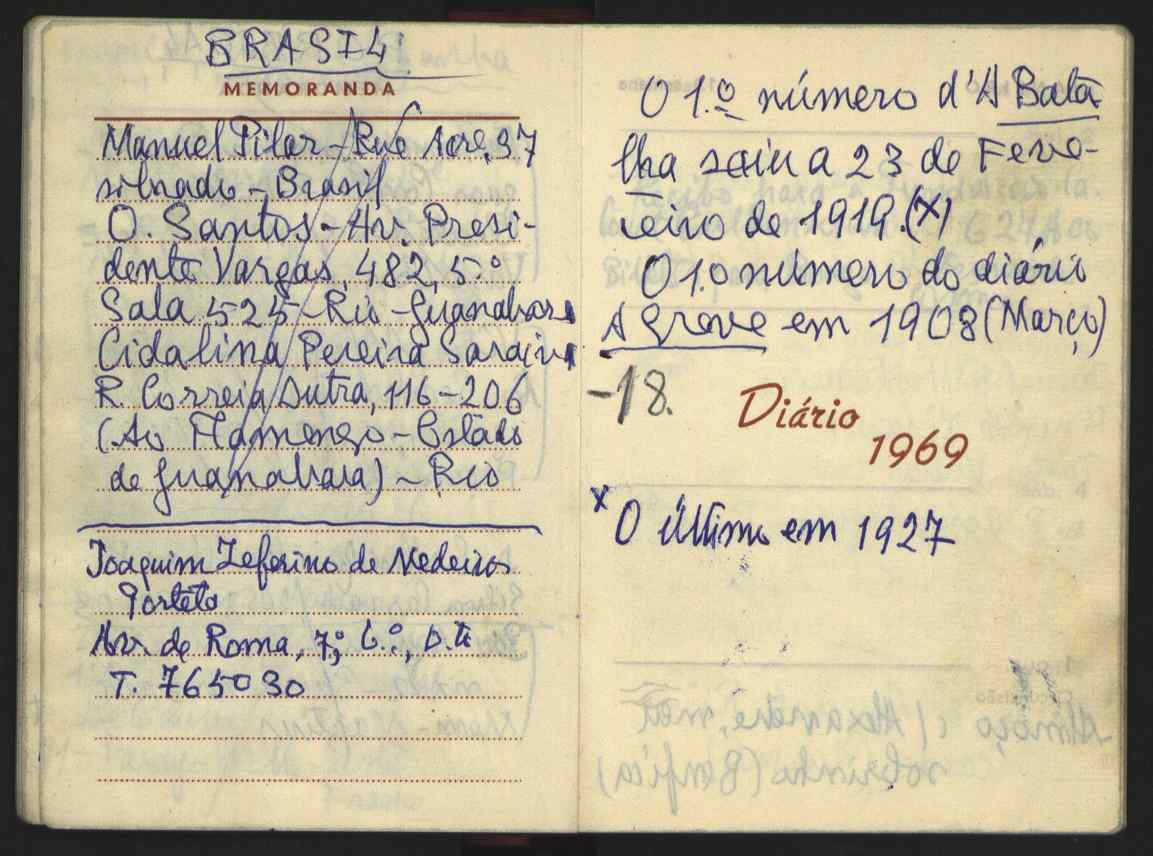 BRASIL
MEMORANDA
Manuel Pilar - Rua Acre, 97
sobrado - Brasil
O. Santos - Av. Presi-
dente Vargas, 482, 5º
Sala 525 - Rio - Guanabara
Cidalina Pereira Saraiva
R. Correia Dutra, 116-206
(Ao Flamengo - Estado
de Guanabara) - Rio
Joaquim Zeferino de Medeiros
Av. de Roma, 7, 6.º, D.to
T. 765090
O 1.º número d'A Bata
lha saiu a 23 de Feve-
reiro de 1919. (X)
O 1.o número do diário
A Greve em 1908 (Março)
-18.
Diário
1969
X O último em 1927